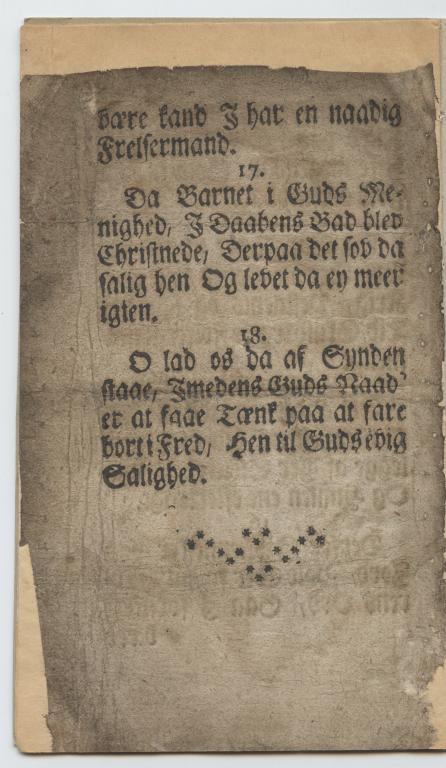 bære kand J har en naadig
Frelsermand.
17.
Da Barnet i Guds Me-
nighed, J Daabens Bad blev
Christnede, Derpaa det sov da
salig hen Og levet da ey meer
igien.
18.
O lad os da af Synden
staae, Jmedens Guds Naad'
er at faae Tænk paa at fare
bort i Fred, Hen til Guds evig
Salighed.